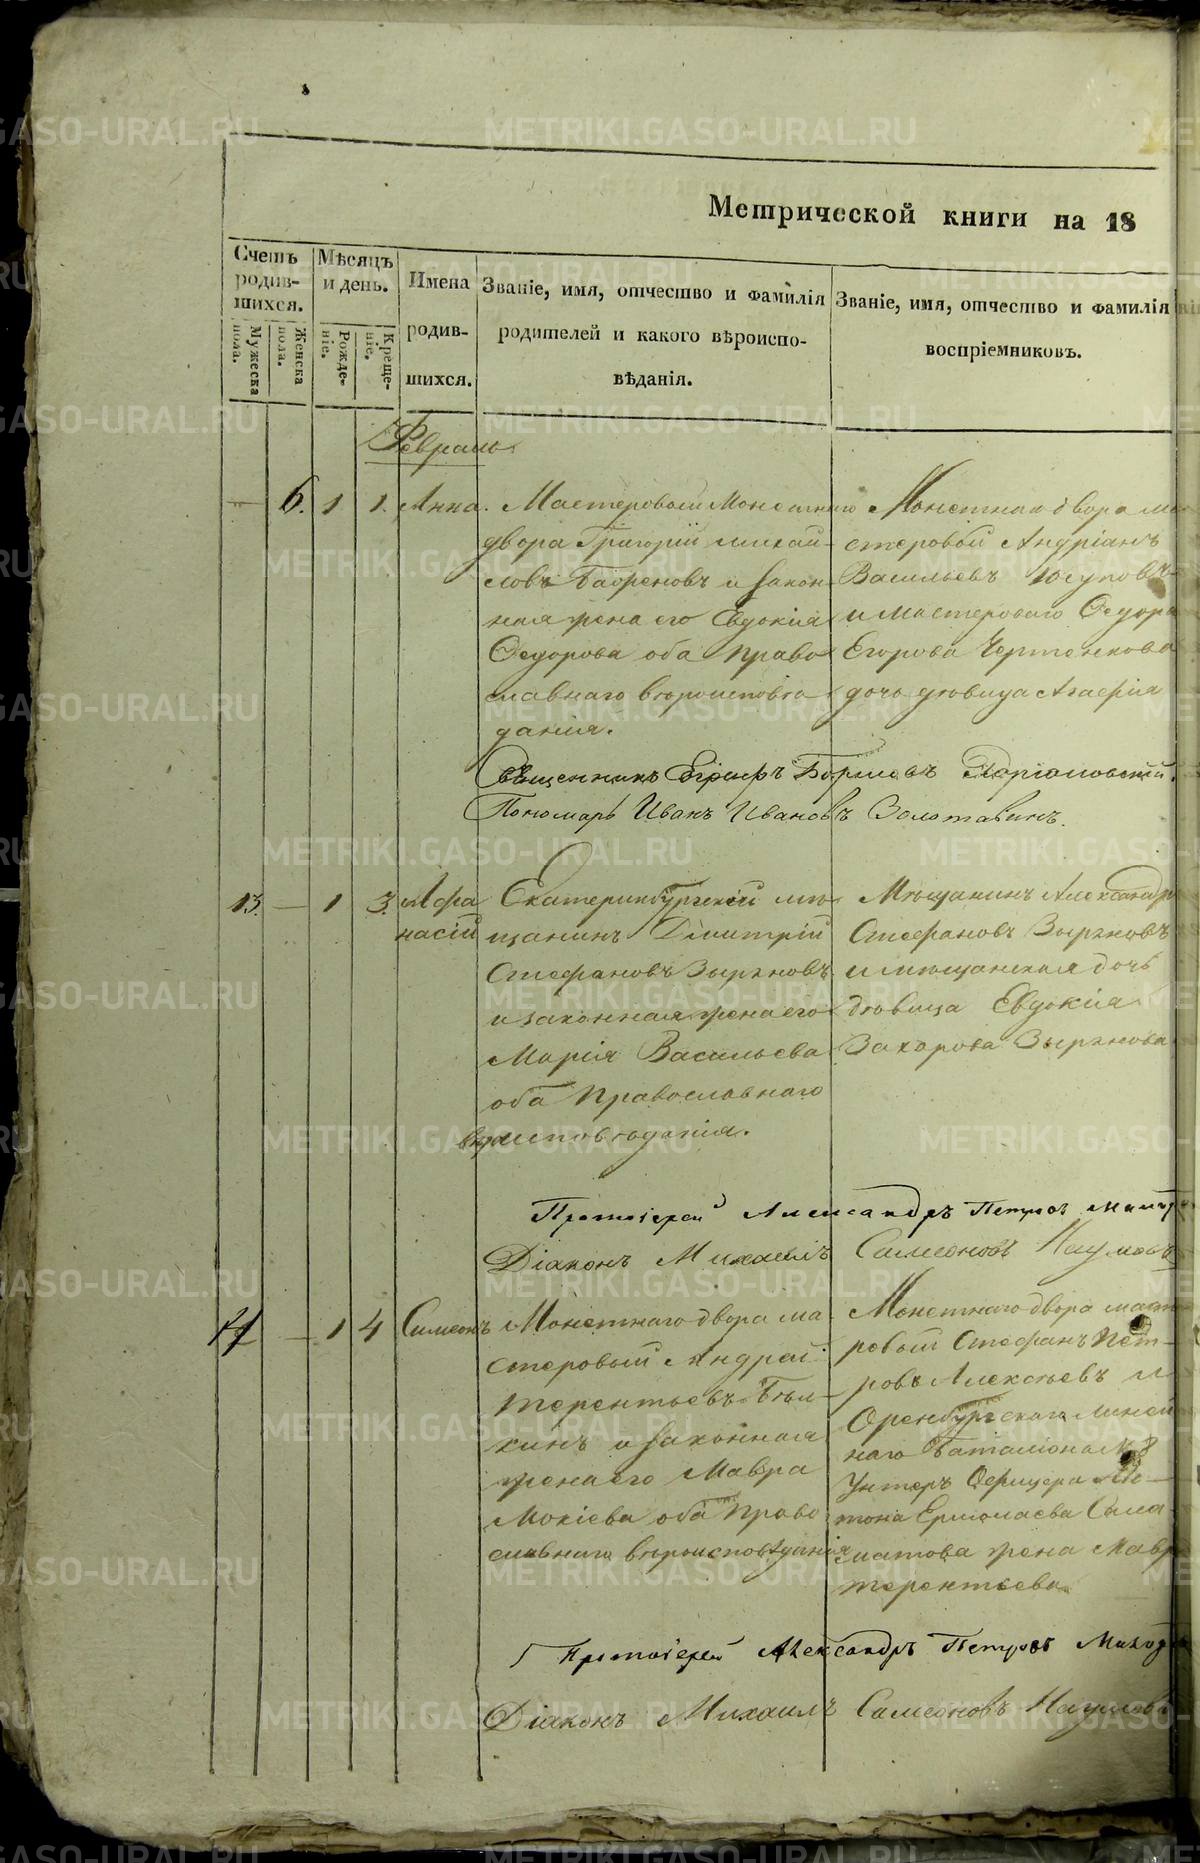 Метрической книги на 18
Счетъ родив-шихся.
Мужеска пола.
Женска пола.
Мѣсяцъ и день.
Рожде-ніе.
Креще-ніе.
Имена родив-шихся.
Званіе, имя, отчество и фамилія
родителей и какого вѣроиспо-
вѣданія.
Званіе, имя, отчество и фамилія
воспріемниковъ.
Февраль
— 6. 1 1. Анна.
Мастеровой Монетнаго
двора Григорій Михай-
ловъ и закон-
ная жена его Евдокія
Ѳедорова оба право
славнаго вѣроисповѣ
данія.
Монетнаго двора ма
стеровой Андріанъ
Васильевъ Юсуповъ
и мастероваго Ѳедора
Егорова
дочь дѣвица Агафія
Священникъ
Пономарь Иванъ Ивановъ Золотавинъ.
13. — 1 3. Афа
насій
Екатеринбургскій мѣ
щанинъ Димитрій
Стефановъ Зыряновъ
и законная жена его
Марія Васильева
оба Православнаго
вѣроисповѣданія.
Мѣщанинъ Александръ
Стефановъ Зыряновъ
и мѣщанская дочь
дѣвица Евдокія
Захарова Зырянова
Протоіерей Александръ Петровъ
Діаконъ Михаилъ Самсоновъ Наумовъ
14 — 1 4 Симеонъ
Монетнаго двора ма
стеровый Андрей
Терентьевъ Бѣл-
кинъ и законная
жена его Мавра
Мокіева оба право
славнаго вѣроисповѣданія
Монетнаго двора маст
ровый Стефанъ Пет-
ровъ Алексѣевъ и
Оренбургскаго Линей
наго баталіона № 8
Унтеръ Офицера Пла-
тона Ермолаева
жена Мавр
Терентьева
Протоіерей Александръ Петровъ
Діаконъ Михаилъ Самсоновъ Наумовъ
METRIKI.GASO-URAL.RU